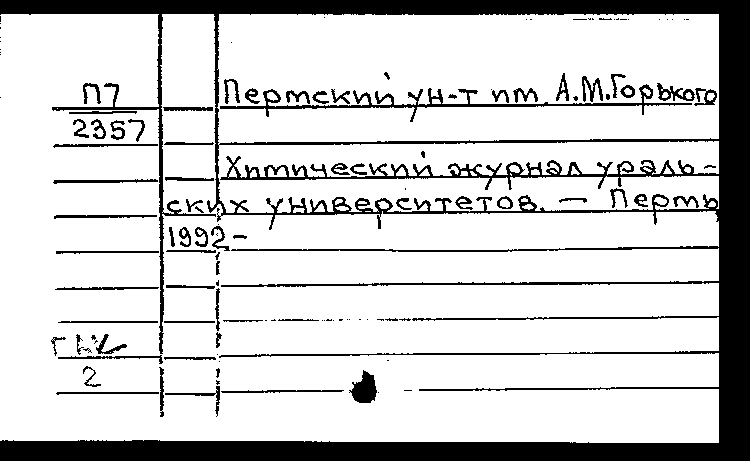 П7
2357
Пермский ун-т им. А.М.Горького
Химический журнал ураль-
ских университетов. — Пермь
1992-
2